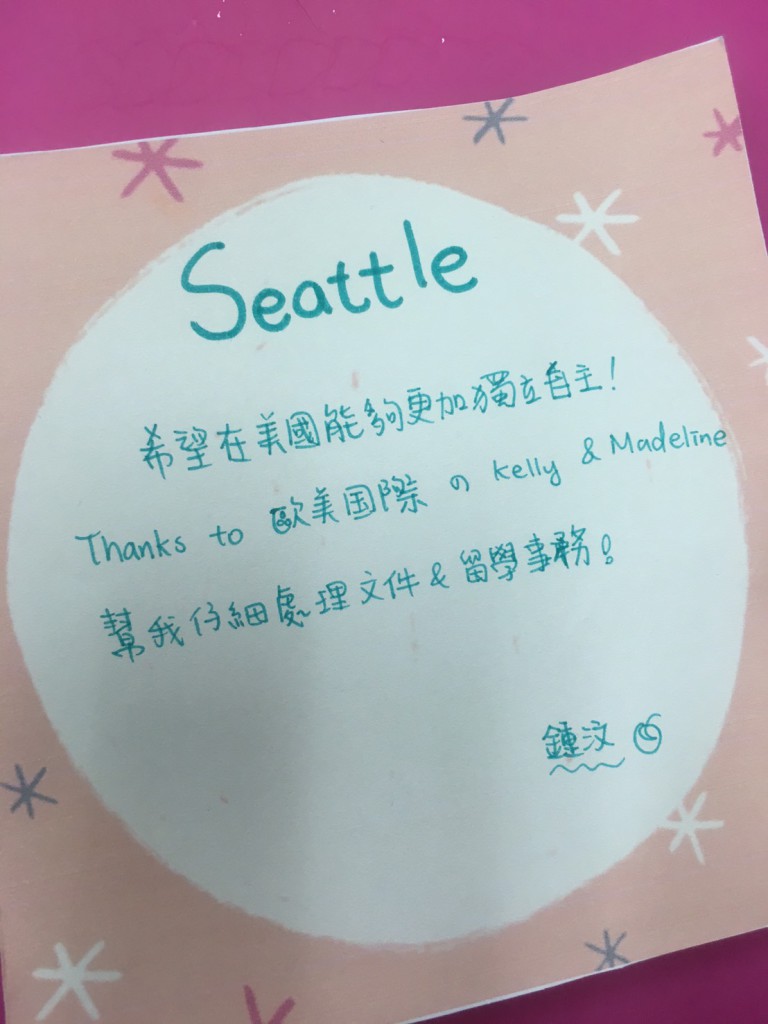 Seattle
希望在美國能夠更加獨立自主!
Thanks to 歐美国際 の Kelly & Madeline
幫我仔細處理文件&留學事務!
鍾汶